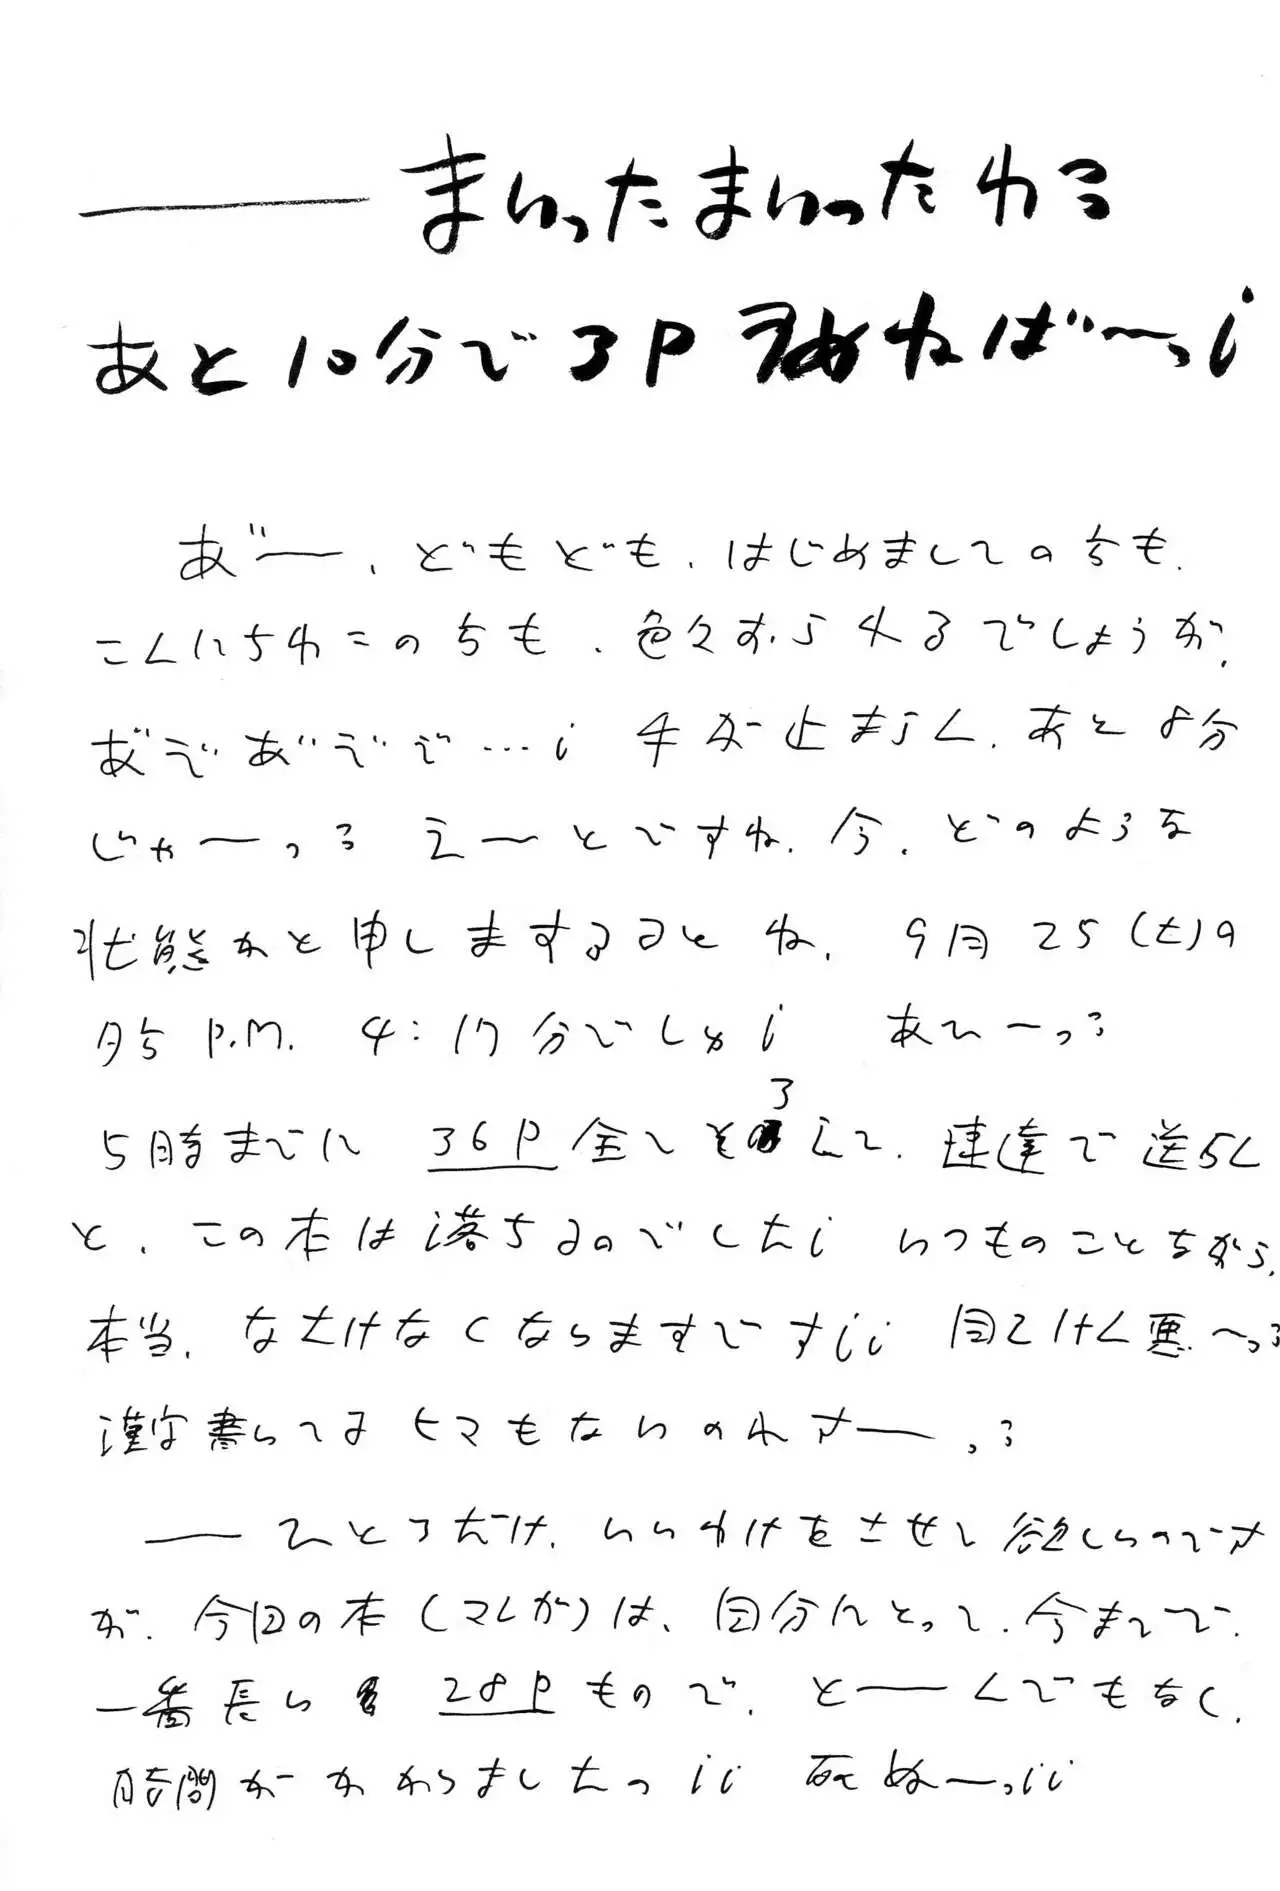 ——まいったまいったわろ
あと10分で3P 埋めねば〜っ!
あ゛ー、どもども、はじめましての方も、
こんにちわこの方も、色々おられるでしょうが、
あ゛であ゛でで…! 手が止まらん、あと8分
じゃーっろ えーとですね、今、どのような
状態かと申しまするるとね、9月25(土)の
時 P.M. 4:17分でしゅ! あひーっろ
5時までに 36P 全てそろえて、速達で送らん
と、この本は落ちるのでした! いつものことながら、
本当、なさけなくなりますですii 目こけん悪〜っろ
漢字書いてるヒマもないのれすー、ろ
——ひとつだけ、いいわけをさせて欲しいのです
が、今回の本(マンガ)は、自分にとって、今までで、
一番長い 28P もので、と——んでもなく、
時間がかかりましたっii 死ぬーっii